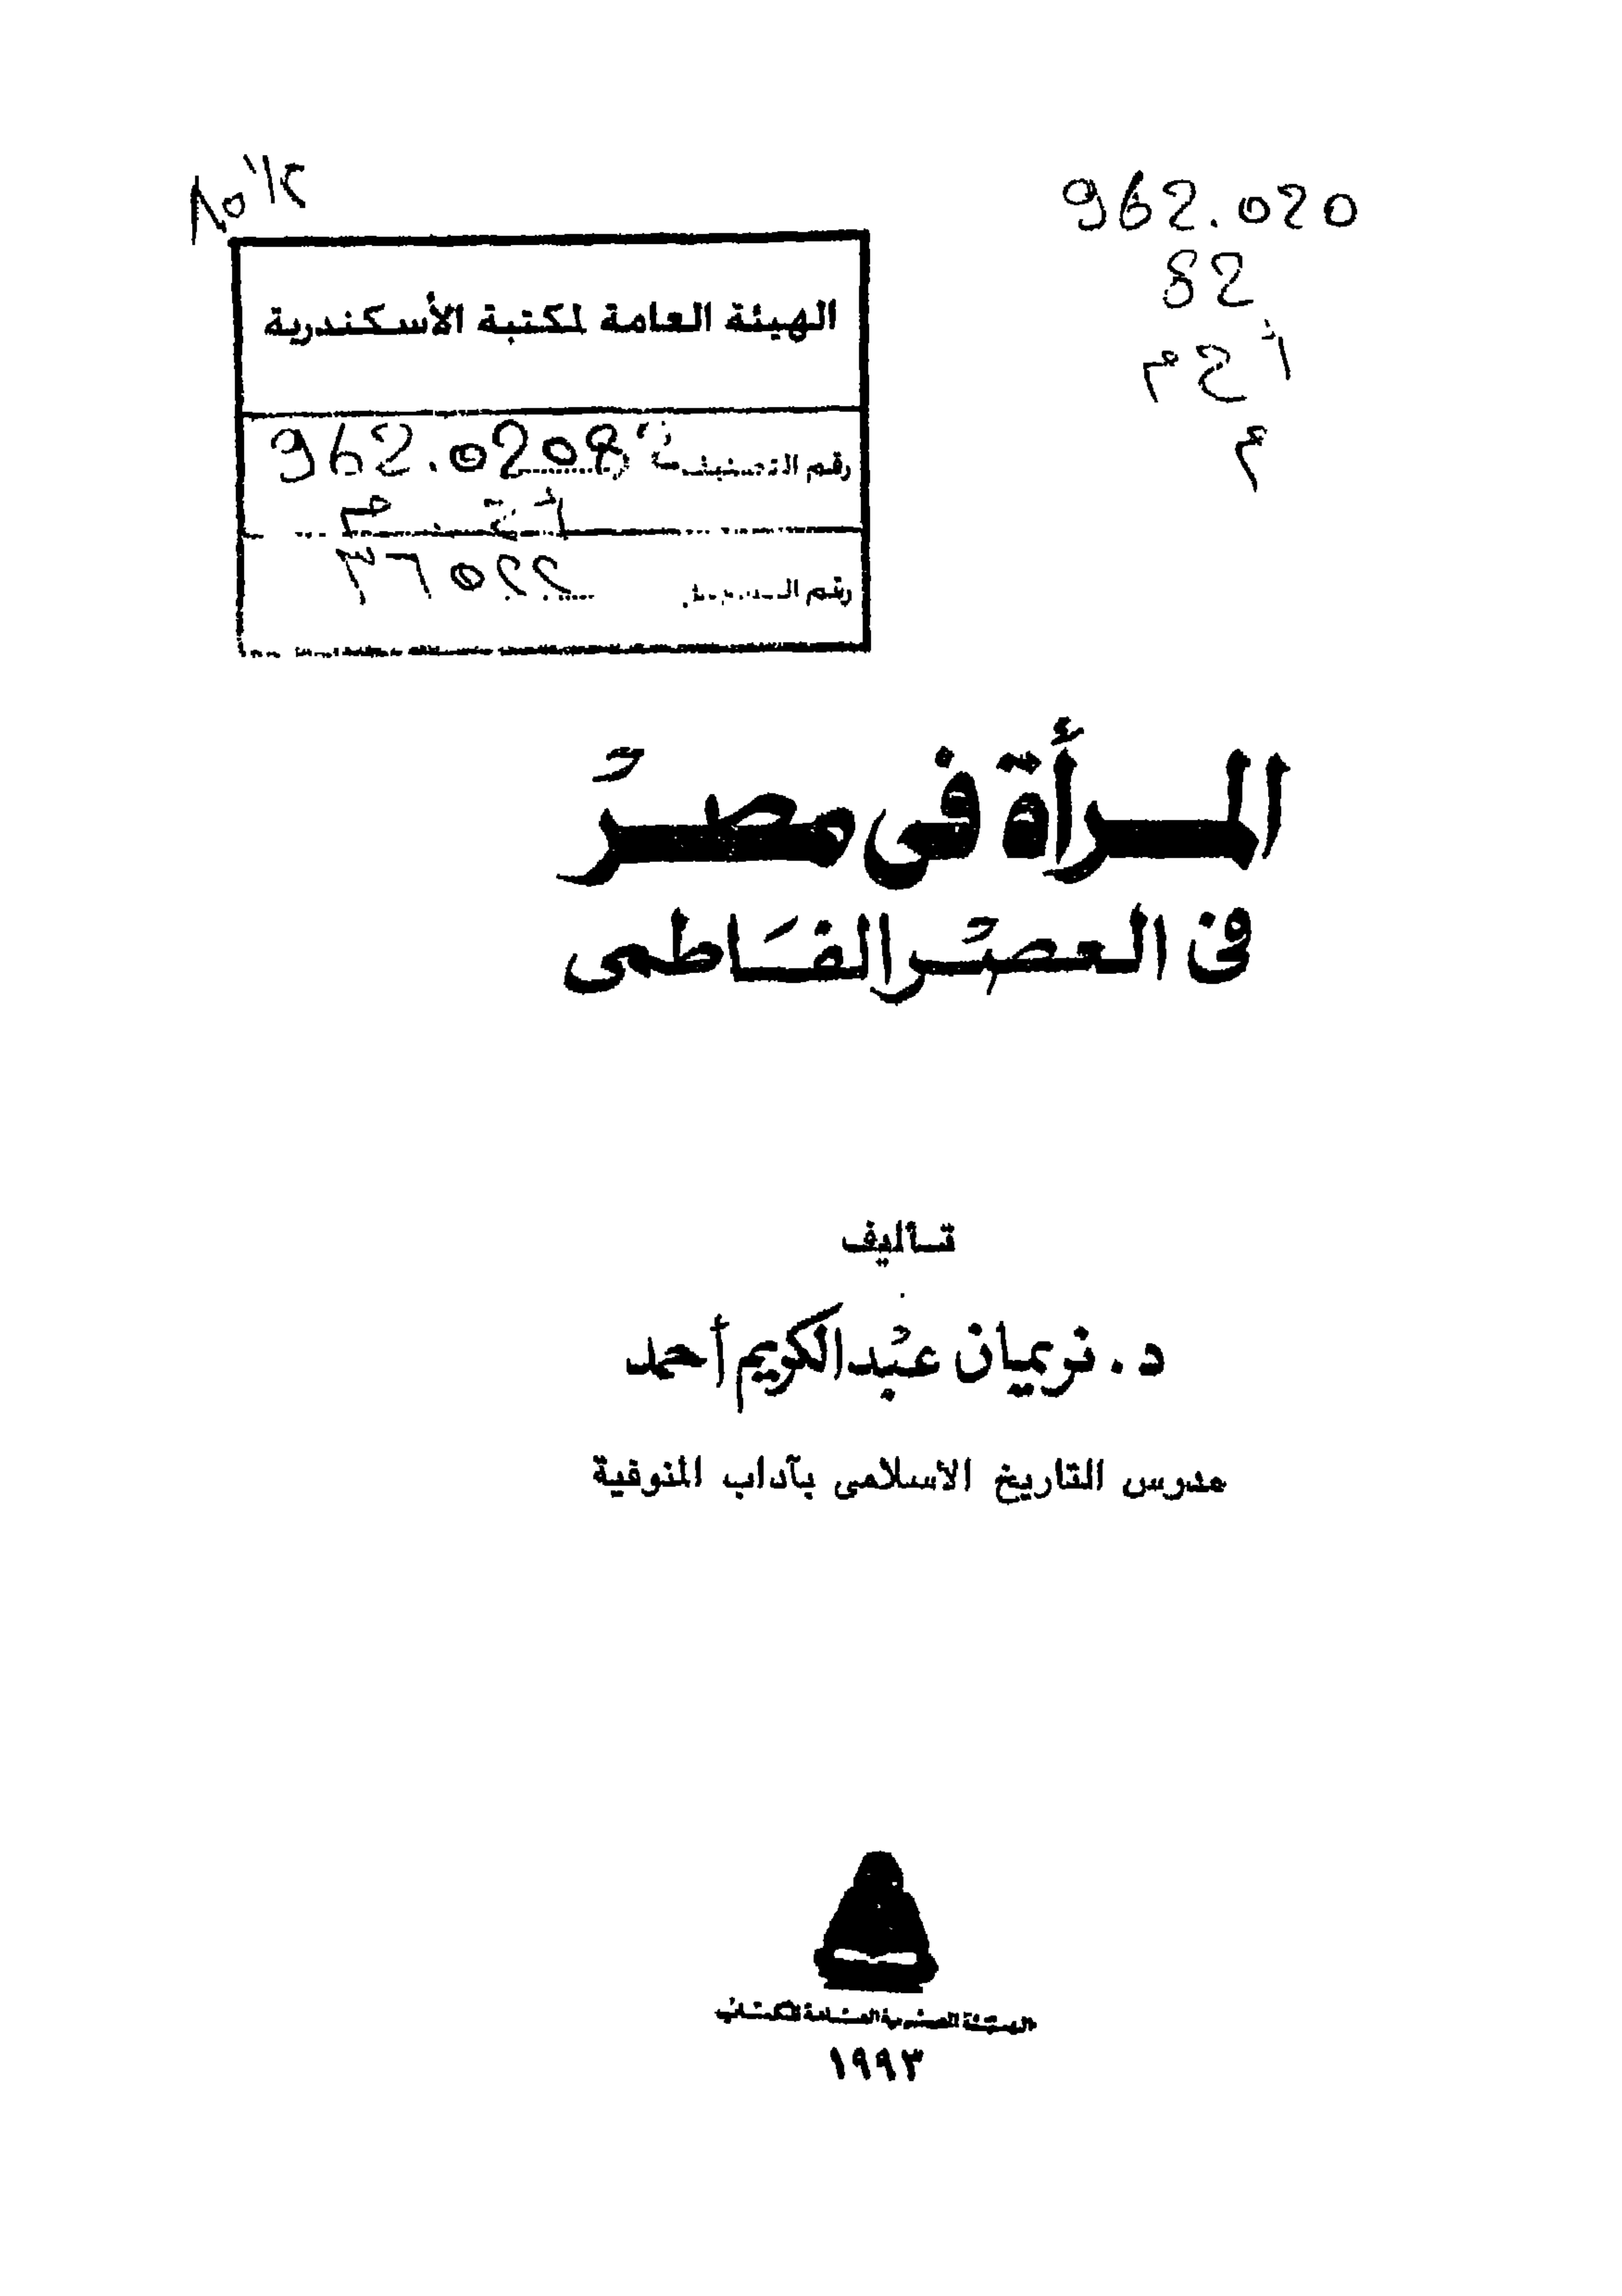 962.020
82
الهيئة العامة لمكتبة الأسكندرية
رقم التصنيف 962.0208
رقم التسجيل ٣٦٥٢٢
المرأة فى مصر
فى العصر الفاطمى
تأليف
د. نريمان عبد الكريم أحمد
مدرس التاريخ الاسلامى بآداب المنوفية
الهيئة المصرية العامة للكتاب
١٩٩٣